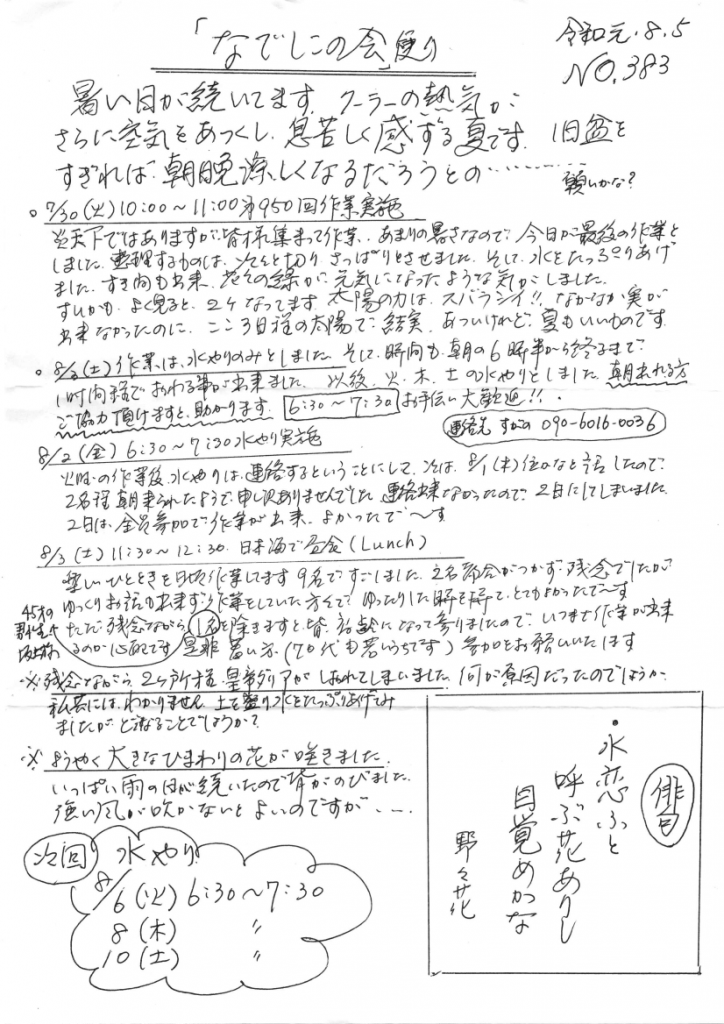 「なでしこの会」便り
令和元.8.5
NO.383
暑い日が続いてます。クーラーの熱気が
さらに空気をあつくし、息苦しく感ずる夏です。旧盆を
すぎれば朝晩涼しくなるだろうとの………
願いかな?
○7/30(火)10:00～11:00 第950回作業実施
炎天下ではありますが、皆様集まって作業、あまりの暑さなので、今日が最後の作業と
しました。整理するものは、次々と切りさっぱりとさせました。そして、水をたっぷりあげ
ました。すき間も出来、花々の緑が元気になったような気がしました。
すいかも、よく見ると、2ケなってます。太陽の力は、スバラシイ!!なかなか実が
出来なかったのに、ここ3日程の太陽で結実、あついけれど、夏もいいものです。
作業は、水やりのみとしました。そして、時間も、朝の6時半から終るまで、
1時間程でおわる事が出来ました。以後、火、木、土の水やりとしました。朝来れる方
ご協力頂けますと、助かります。6:30～7:30お手伝い大歓迎!!
連絡先 すがの 090-6016-0036
8/2(金)6:30～7:30水やり実施
の作業後、水やりは、連絡するということにして、次は、8/1(木)位かなと話したので、
2名程朝来られたようで、申し訳ありませんでした。連絡出来なかったので、2日にしてしまいました。
2日は、全員参加で作業が出来、よかったで～す
8/3(土)11:30～12:30 日本海で会食(Lunch)
ひとときを日頃作業してます9名ですごしました。2名都合がつかず残念でしたが、
ゆっくりお話も出来ず作業をしていた方々で、ゆったりした時を得て、とてもよかったで～す
ただ、残念ながら、1名を除きますと、皆高齢になって参りましたので、いつまで作業が出来
るのか心配です。是非若い方(70代も若いうちです)参加をお願いいたします
45才の
※残念ながら、2ヶ所程皇帝ダリアがしおれてしまいました。何が原因だったのでしょうか。
私共には、わかりません。土を盛り水をたっぷりあげてみ
ましたが、どうなることでしょうか?
※ようやく大きなひまわりの花が咲きました。
いっぱい雨の日が続いたので背がのびました。
強い風が吹かないとよいのですが、…
次回 水やり
8/6(火)6:30～7:30
8(木) 〃
10(土) 〃
俳句
・水恋ふと
呼ぶ花ありし
目覚めかな
野々花